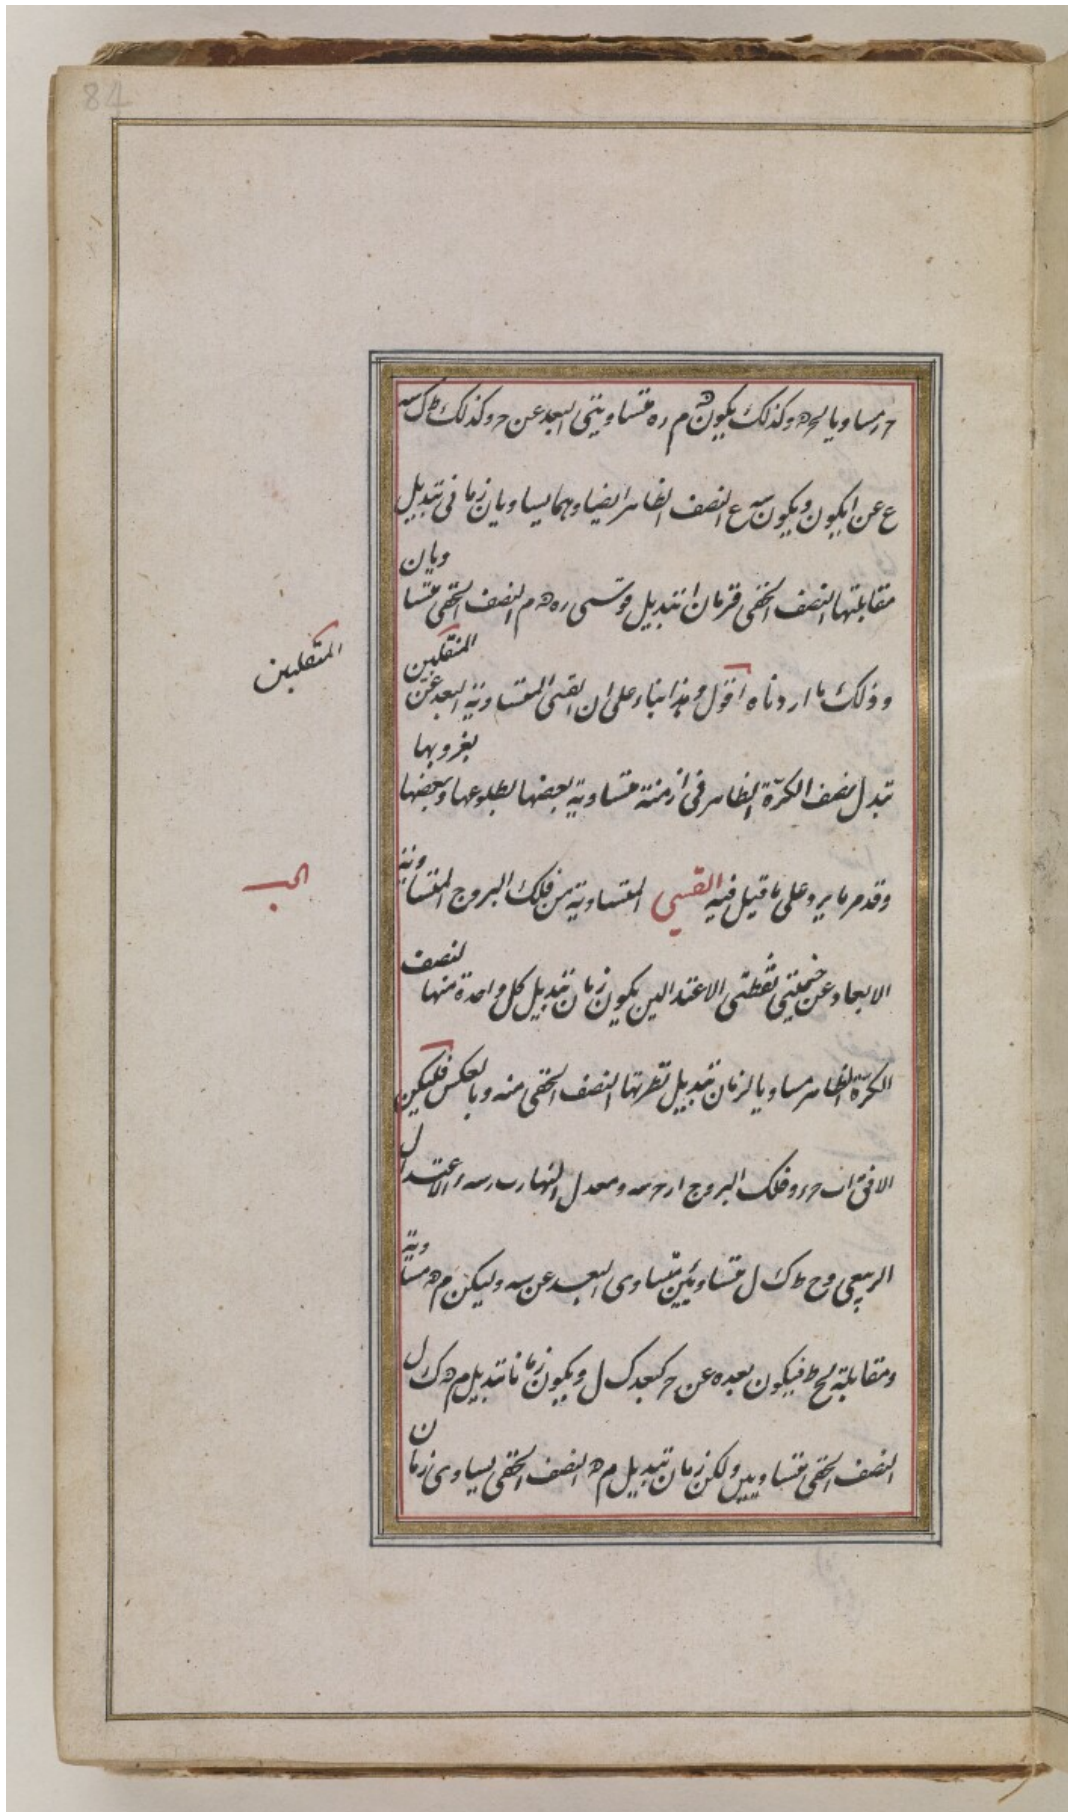 84
ح ر مساويا لح ه وكذلك يكون ه م ر ه متساويتي البعد عن ح وكذلك ط ك سه
ع عن ايكون ويكون سه ع النصف الظاهر ايضا وهما يساويان زماني تبديل
مقابلتها النصف الخفي فزمان اتبديل قوسي ره ه م النصف الخفي متسا
ويان
وذلك ما اردناه اقول وهذا بناء على ان القسي المتساوية البعد عن
المنقلبين
تبدل نصف الكرة الظاهر في ازمنة متساوية بعضها بطلوعها وبعضها
بغروبها
وقد مر ما يرد على ما قيل فيه القسي المتساوية من فلك البروج المتسا
وية
الابعاد عن جنبتي نقطتي الاعتدالين يكون زمان تبديل كل واحدة منها
لنصف
الكرة الظاهر مساويا لزمان تبديل نظيرتها النصف الخفي منه وبالعكس فليكن
الافق اب ح ر وفلك البروج ا ر ح سه ومعدل النهار ب ر سه ر الاعتدال
الربيعي وح ط ك ل متساويتين متساوي البعد عن سه وليكن م ه مسا
وية
ومقابلة لح ط فيكون بعده عن ح كبعد ك ل ويكون زمانا تبديل م ه ك ل
النصف الخفي متساويين ولكن زمان تبديل م ه النصف الخفي يساوي زما
ن
المنقلبين